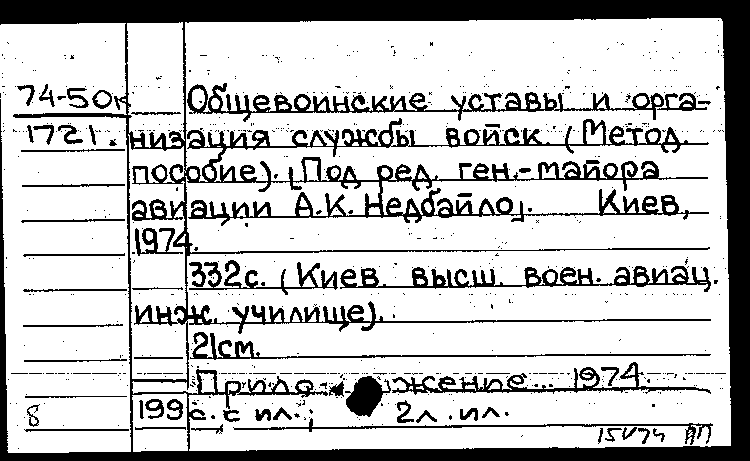 74-50к Общевоинские уставы и орга-
1721. низация службы войск. (Метод.
пособие). [Под ред. ген.-майора
авиации А.К. Недбайло]. Киев,
1974.
332с. (Киев. высш. воен. авиац.
инж. училище).
21см.
— Приложение... 1974.
8 199с. с ил.; 2л. ил.
15V74